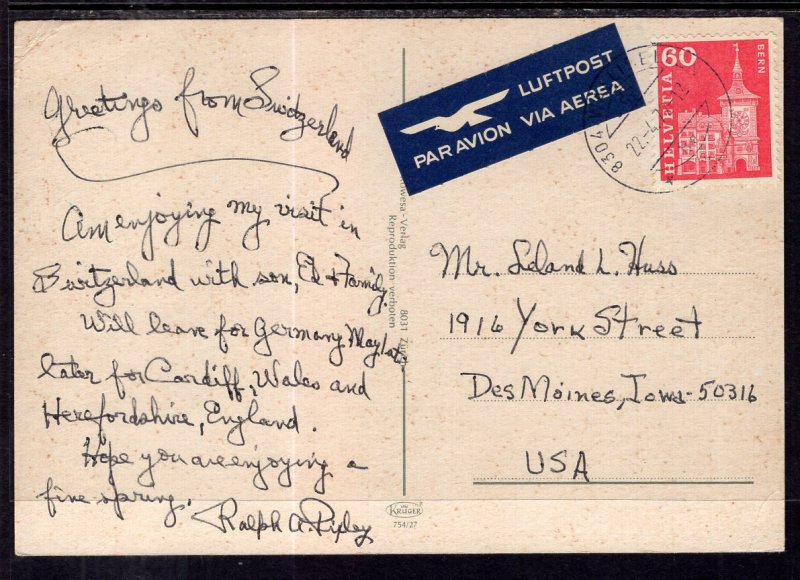 Greetings from Switzerland
Am enjoying my visit in
Switzerland with son, Ed & Family.
Will leave for Germany May 1st
later for Cardiff, Wales and
Herefordshire, England.
Hope you are enjoying a
fine spring.
Ralph A. Ripley
LUFTPOST
PAR AVION VIA AEREA
8304
22.4.
12
60
HELVETIA
BERN
-Verlag 8031
Reproduktion verboten
Mr. Leland L. Huss
1916 York Street
Des Moines, Iowa-50316
USA
KRÜGER
754/27